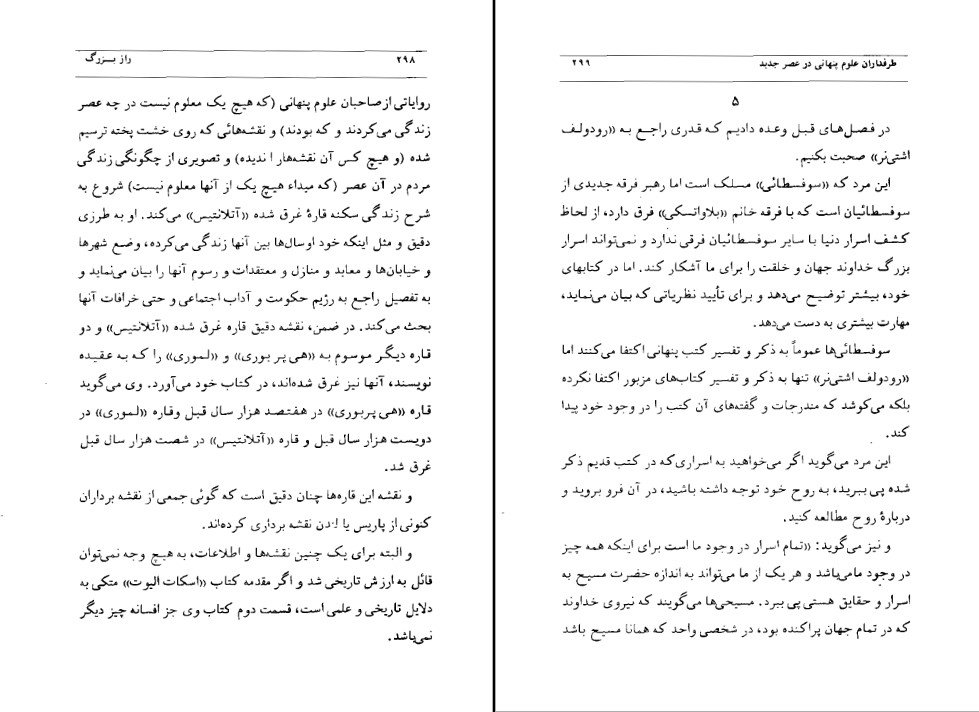 ۲۹۸ راز بـزرگ
روایاتی از صاحبان علوم پنهانی (که هیچ یک معلوم نیست در چه عصر
زندگی می‌کردند و که بودند) و نقشه‌هائی که روی خشت پخته ترسیم
شده (و هیچ کس آن نقشه‌هارا ندیده) و تصویری از چگونگی زندگی
مردم در آن عصر (که میداء هیچ یک از آنها معلوم نیست) شروع به
شرح زندگی سکنه قارهٔ غرق شده «آتلانتیس» می‌کند. او به طرزی
دقیق و مثل اینکه خود اوسال‌ها بین آنها زندگی می‌کرده، وضع شهرها
و خیابان‌ها و معابد و منازل و معتقدات و رسوم آنها را بیان می‌نماید و
به تفصیل راجع به رژیم حکومت و آداب اجتماعی و حتی خرافات آنها
بحث می‌کند. در ضمن، نقشه دقیق قاره غرق شده «آتلانتیس» و دو
قاره دیگر موسوم به «هی‌پر بوری» و «لموری» را که به عقیده
نویسند، آنها نیز غرق شده‌اند، در کتاب خود می‌آورد. وی می‌گوید
قاره «هی‌پربوری» در هفتصد هزار سال قبل وقاره «لموری» در
دویست هزار سال قبل و قاره «آتلانتیس» در شصت هزار سال قبل
غرق شد.
و نقشه این قاره‌ها چنان دقیق است که گوئی جمعی از نقشه برداران
کنونی از پاریس یا لندن نقشه برداری کرده‌اند.
و البته برای یک چنین نقشه‌ها و اطلاعات، به هیچ وجه نمی‌توان
قائل به ارزش تاریخی شد و اگر مقدمه کتاب «اسکات الیوت» متکی به
دلایل تاریخی و علمی است، قسمت دوم کتاب وی جز افسانه چیز دیگر
نمی‌باشد.
طرفداران علوم پنهانی در عصر جدید ۲۹۹
۵
در فصل‌های قبل وعده دادیم که قدری راجع به «رودولف
اشتی‌نر» صحبت بکنیم.
این مرد که «سوفسطائی» مسلک است اما رهبر فرقه جدیدی از
سوفسطائیان است که با فرقه خانم «بلاواتسکی» فرق دارد، از لحاظ
کشف اسرار دنیا با سایر سوفسطائیان فرقی ندارد و نمی‌تواند اسرار
بزرگ خداوند جهان و خلقت را برای ما آشکار کند. اما در کتابهای
خود، بیشتر توضیح می‌دهد و برای تأیید نظریاتی که بیان می‌نماید،
مهارت بیشتری به دست می‌دهد.
سوفسطائی‌ها عموماً به ذکر و تفسیر کتب پنهانی اکتفا می‌کنند اما
«رودولف اشتی‌نر» تنها به ذکر و تفسیر کتاب‌های مزبور اکتفا نکرده
بلکه می‌کوشد که مندرجات و گفته‌های آن کتب را در وجود خود پیدا
کند.
این مرد می‌گوید اگر می‌خواهید به اسراری‌که در کتب قدیم ذکر
شده پی ببرید، به روح خود توجه داشته باشید، در آن فرو بروید و
دربارهٔ روح مطالعه کنید.
و نیز می‌گوید: «تمام اسرار در وجود ما است برای اینکه همه چیز
در وجود مامی‌باشد و هر یک از ما می‌تواند به اندازه حضرت مسیح به
اسرار و حقایق هستی پی ببرد. مسیحی‌ها می‌گویند که نیروی خداوند
که در تمام جهان پراکنده بود، در شخصی واحد که همانا مسیح باشد